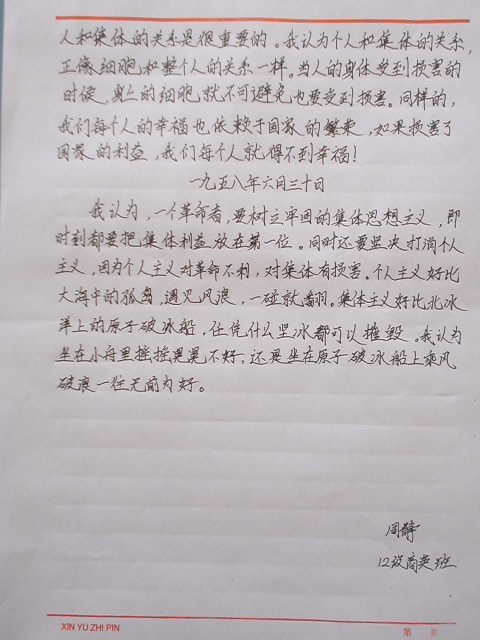 人和集体的关系是很重要的。我认为个人和集体的关系，
正像细胞和整个人的关系一样。当人的身体受到损害的
时候，身上的细胞就不可避免也要受到损害。同样的，
我们每个人的幸福也依赖于国家的繁荣，如果损害了
国家的利益，我们每个人就得不到幸福！
一九五八年六月三十日
我认为，一个革命者，要树立牢固的集体思想主义，即
时刻都要把集体利益放在第一位。同时还要坚决打消个人
主义，因为个人主义对革命不利，对集体有损害。个人主义好比
大海中的孤岛，遇见风浪，一碰就翻。集体主义好比北冰
洋上的原子破冰船，任凭什么坚冰都可以摧毁。我认为
坐在小舟里摇摇晃晃不好，还要坐在原子破冰船上乘风
破浪一往无前为好。
周静
12级商英班
XIN YU ZHI PIN
第 页